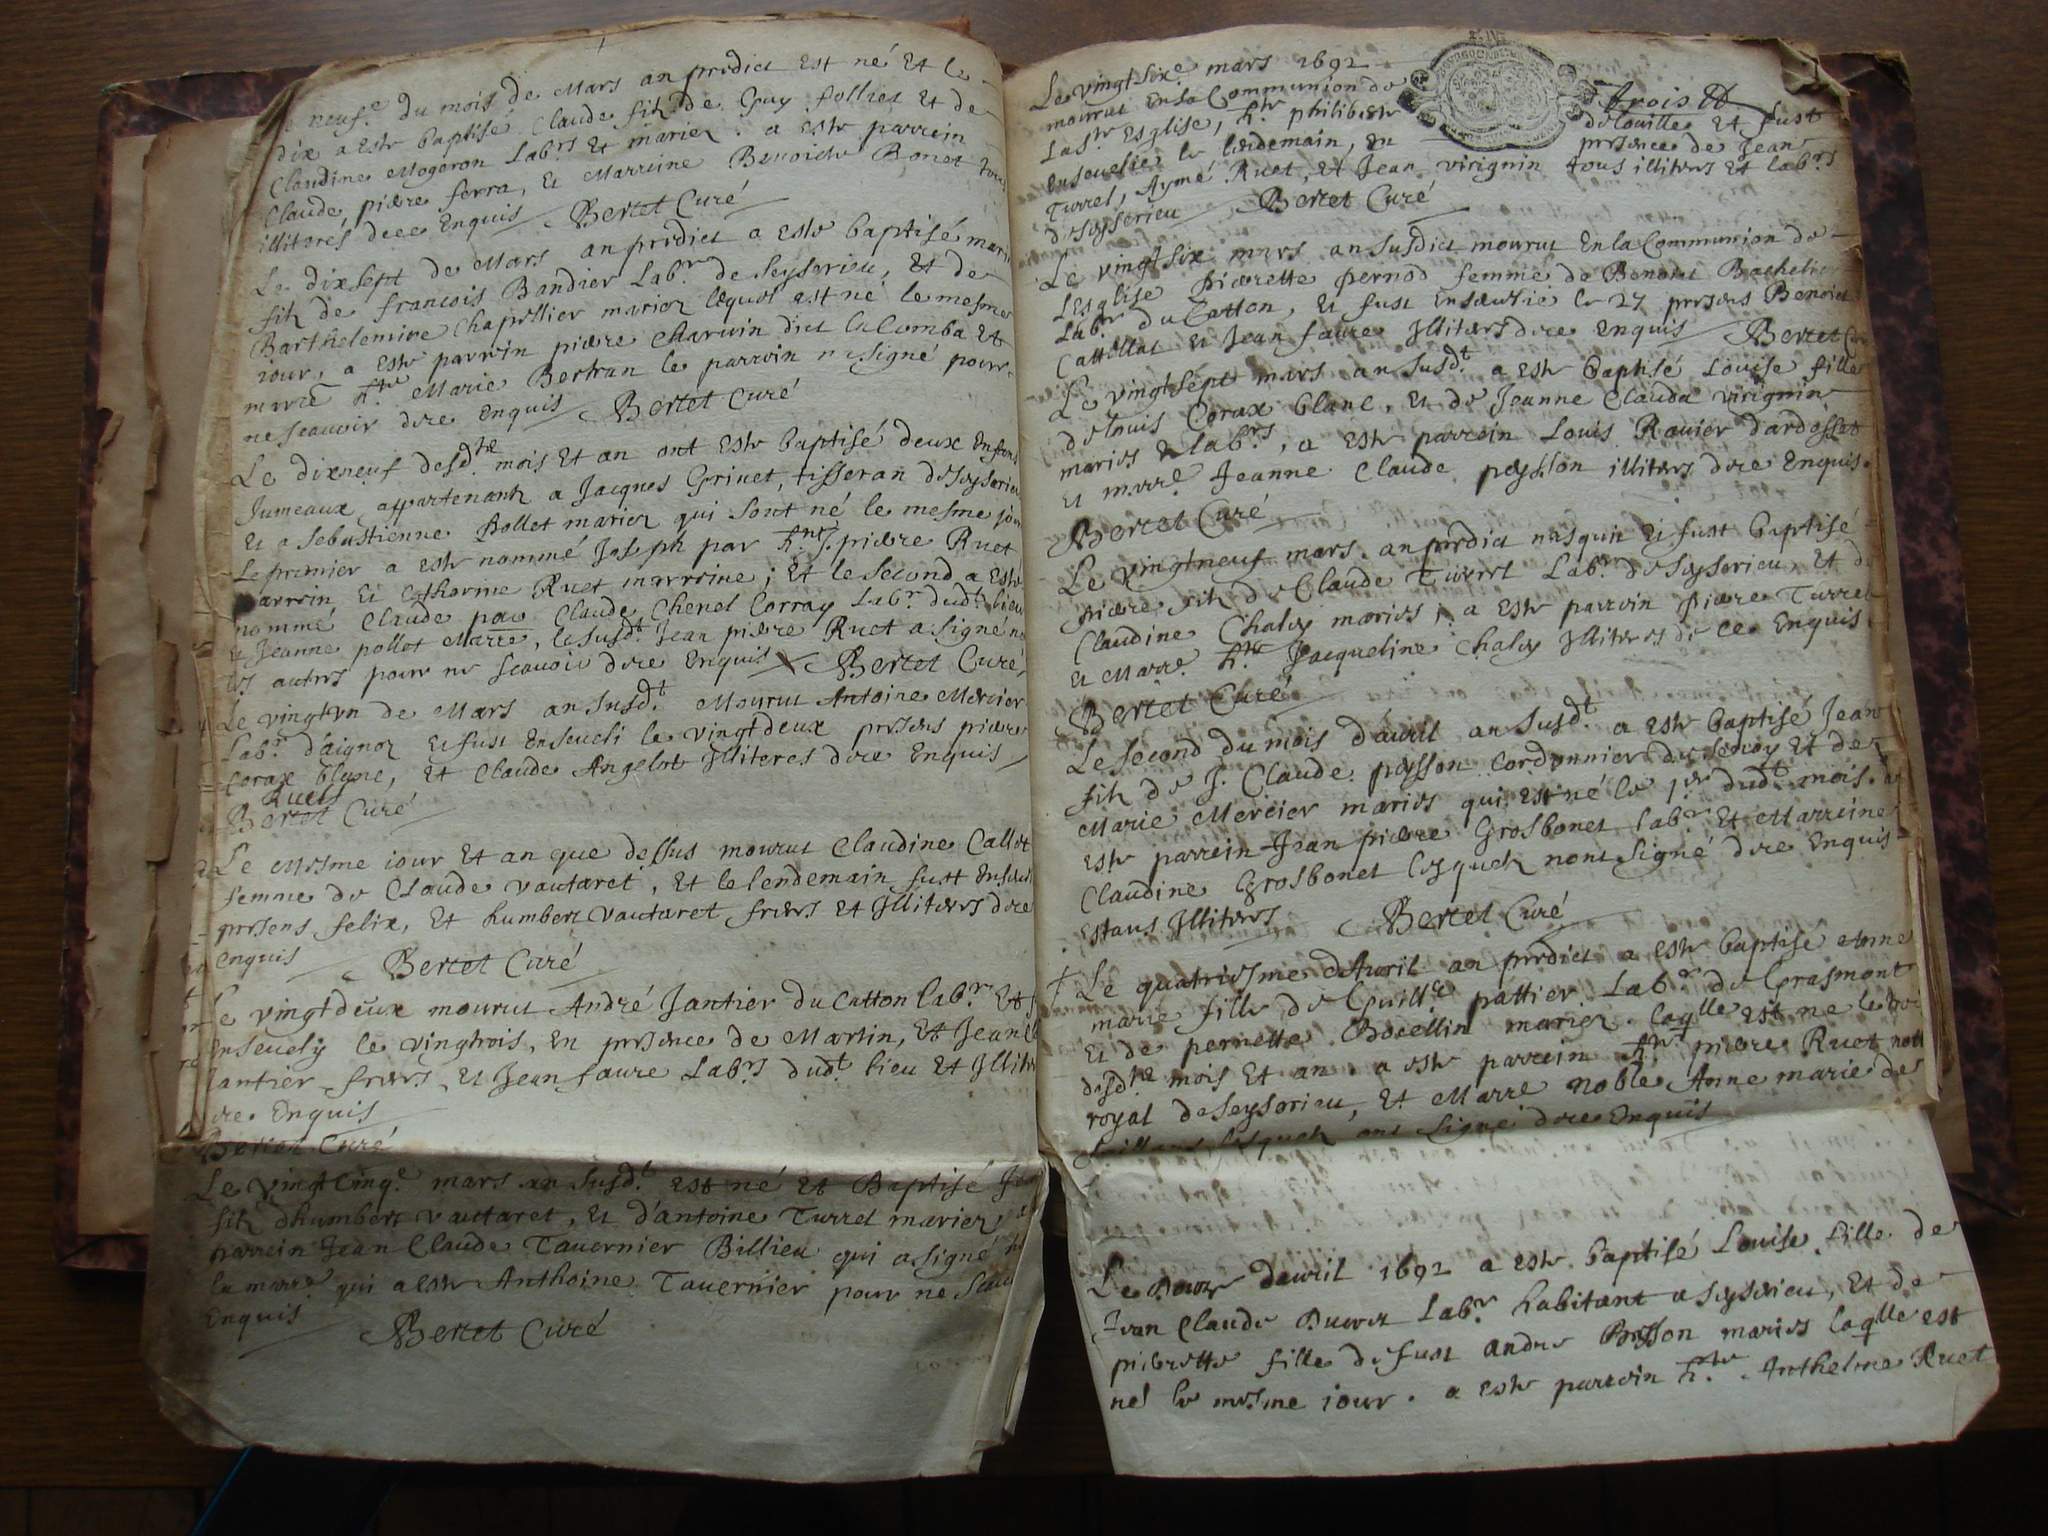 neuf.e du mois de Mars an predict est né et le
dix a este baptisé Claude filz de Guy follict et de
Claudine Mogeron Lab.rs et mariez. a este parrein
Claude pierre ferra, et Marreine Benoiste Bonet
illiteres dece Enquis Bertet Curé
Le dixsept de Mars an predict a este baptisé
filz de francois Bandier Lab.r de Seyserieu, et de
Barthelemine Chapellier mariez lequel est né le mesme
iour, a este parrein piere Charvin dict la Comba et
marre h.te Marie Bertran le parrein na signé pour
ne scavoir dece Enquis Bertet Curé
Le dixneuf desd.te mois et an ont este baptisé deux Enfans
Jumeaux appartenantz a Jacques Grinet, tisseran de Seyserieu
et a Sebastienne Bollet mariez qui sont né le mesme jour
Le premier a este nommé Joseph par h.nte J. piere Ruet
parrein et Catherine Ruet marreine; et le second a este
nommé Claude par Claude Chenel Corray Lab.r dud.t lieu
et Jeanne pollet Marre, le susd.t Jean piere Ruet a signé
les autres pour ne scavoir dece Enquis Bertet Curé
Le vingtvn de Mars an susd.t Mourut Antoine Mercier
Lab.r d'aignoz et fust Enseveli le vingtdeux presens piere
Corax blanc, et Claude Angelot Illiteres dece Enquis
Ruets
Bertet Curé
Le Mesme iour et an que dessus mourut Claudine Callet
femme de Claude vautaret, et le lendemain fust
presens felix, et humbert vautaret freres et Illiteres dece
enquis Bertet Curé
Le vingtdeux mourut André Jantier du Catton lab.r et
Ensevely le vingtrois, en presence de Martin, et Jean
Jantier freres et Jean faure Lab.rs dud.t lieu et
dece Enquis
Bertet Curé
Le vingtcinq.e mars an susd.t est né et Baptisé
filz dhumbert vautaret, et d'antoine Turrel mariez, a
parrein Jean Claude Tavernier Billieu qui a signé
la marre qui a este Anthoine Tavernier pour ne
Enquis
Bertet Curé
Le vingtsix.e mars 1692
trois
mourut en la Communion de
la s.te Esglise, h.te philiberte de Louille et fust
ensevelie le lendemain, en presence de Jean
Turrel, Aymé Ruet, et Jean virignin tous illiteres et lab.rs
de Seyserieu Bertet Curé
Le vingtsix mars an susdict mourut En la Communion de
LEsglise pierette pernod femme de Benoict Bachelier
Lab.r du Catton, et fust Ensevelie le 27 presens Benoict
Cattillat et Jean faure Illiteres dece enquis Bertet
Le vingtsept mars an susd.t a este baptisé Louise fille
de Louis Corax blanc, et de Jeanne Claude virignin
maries & lab.rs, a este parrein Louis Ravier dardosset
et marre Jeanne Claude peysson illiteres dece enquis.
Bertet Curé
Le vingtneuf mars an predict nasquit et fust baptisé
piere filz de Claude Turrel Lab.r de Seyserieu, et de
Claudine Chaley maries, a este parrein piere Turrel
et Marre h.te Jacqueline Chaley Illiteres de ce Enquis
Bertet Curé
Le second du mois d'avril an susd.t a este baptisé Jean
filz de J. Claude peysson Cordonnier de et de
Marie Mercier maries qui est né le 1.er dud.t mois. a
este parrein Jean piere Grosbonet lab.r et Marreine
Claudine Grosbonet lesquelz nont signé dece Enquis
Estans Illiteres Bertet Curé
Le quatriesme d'Avril an predict a este baptisé
marie fille de Guill.e pattier Lab.r de Grasmont
et de pernette Bocellin mariez laq.lle est ne le
desd.te mois et an a este parrein piere Ruet nott
royal de Seyserieu, et Marre noble Anne marie de
lesquelz ont signé dece Enquis
Le Douze davril 1692 a este baptisé Louise fille de
Jean Claude Lab.r habitant a Seyserieu, et de
pierrette fille defunt andre Besson maries laq.lle est
né le mesme iour. a este parrein h.te Anthelme Ruet